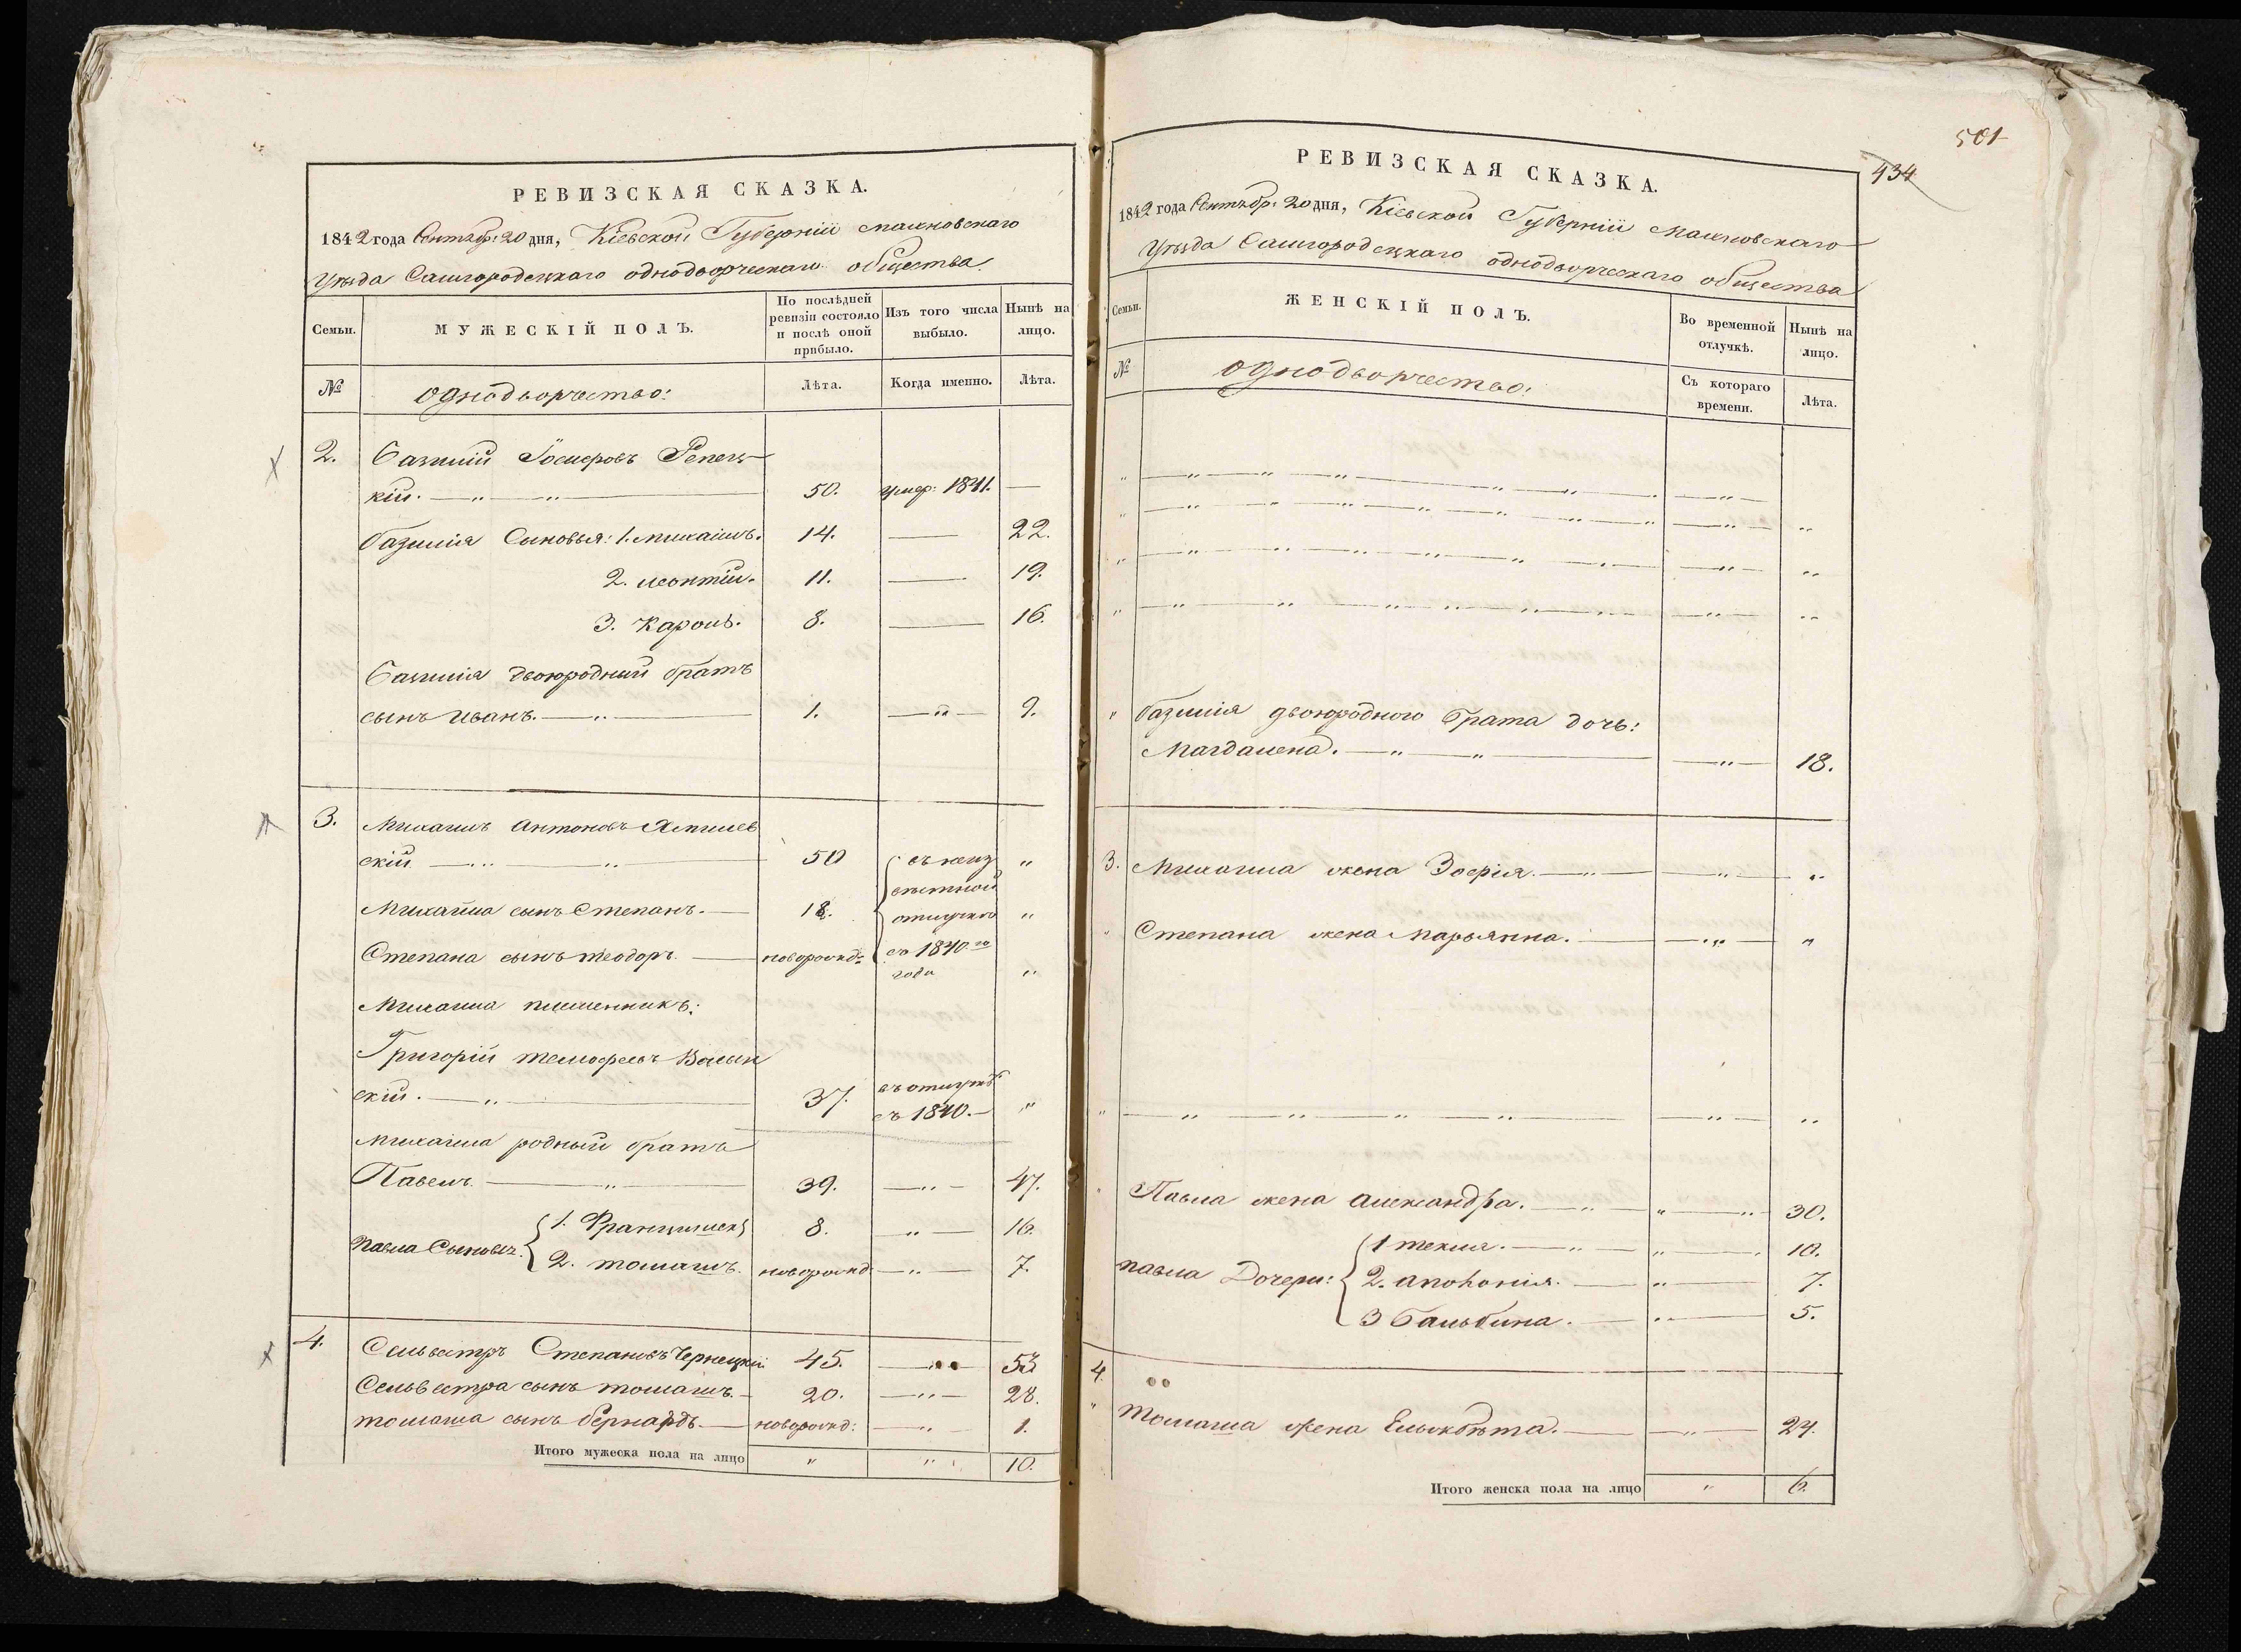 РЕВИЗСКАЯ СКАЗКА.
1842 года Сентябр: 20 дня, Кіевской Губерніи Махновскаго
Уѣзда Самгородецкаго однодворческаго общества
Семьи.
МУЖЕСКІЙ ПОЛЪ.
По послѣдней ревизіи состояло и послѣ оной прибыло.
Изъ того числа выбыло.
Нынѣ на лицо.
№
однодворчество:
Лѣта.
Когда именно.
Лѣта.
2. Базилій Іосифовъ Репец-
кій. — „ — „ — 50. умер: 1841. —
Базилія Сыновья: 1. Михаилъ. 14. — 22.
2. Леонтій. 11. — 19.
3. Кароль. 8. — 16.
Базилія двоюродный братъ
сынъ Иванъ. — „ — 1. — „ — 9.
3. Михаилъ Антоновъ
скій — „ — „ — 50 въ неиз „
вѣстной
Михайла сынъ Степанъ. — 18. отлучкѣ „
Степана сынъ Теодоръ. — новорожд: съ 1840 го
года „
Михаила племенникъ:
Григорій
скій. — „ — 37. въ отлучкѣ
съ 1840. — „
Михаила родный братъ
Павелъ. — „ — 39. — „ — 47.
Павла Сыновья. 1. Францишекъ 8. „ — 16.
2. Томашъ. новорожд — „ — 7.
4. Сильвестръ Степановъ Чернецкій 45. — „ 53
Сильвестра сынъ Томашъ. — 20. — „ — 28.
Томаша сынъ Бернардъ. — новорожд: — „ — 1.
Итого мужеска пола на лицо „ „ 10.
501
434
РЕВИЗСКАЯ СКАЗКА.
1842 года Сентябр: 20 дня, Кіевской Губерніи Махновскаго
Уѣзда Самгородецкаго однодворческаго общества
Семьи.
ЖЕНСКІЙ ПОЛЪ.
Во временной отлучкѣ.
Нынѣ на лицо.
№
однодворчество:
Съ котораго времени.
Лѣта.
„ Базилія двоюродного брата дочь:
Магдалена. — „ — „ — — „ — 18.
3. Михаила жена Зофія. — „ — — „ — „
„ Степана жена Марьянна. — — „ — „
„ Павла жена Александра. — „ — „ — „ 30.
Павла Дочери: 1 Текля. — „ — „ — 10.
2. Аполонія. — „ — 7.
3 Бальбина. — „ — 5.
4. „
„ Томаша жена Ельжбѣта. — — „ — 24.
Итого женска пола на лицо „ 6.